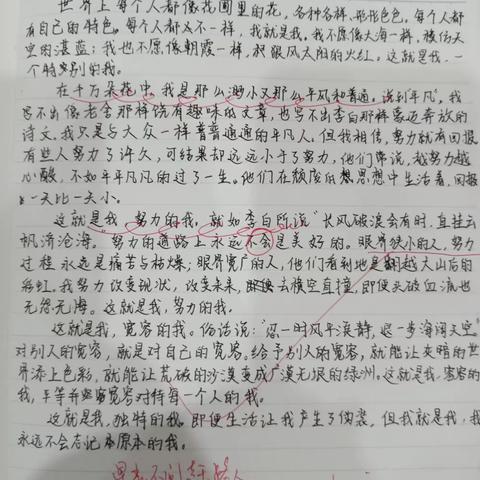 世界上每个人都像花园里的花，各种各样、形形色色。每个人都
有自己的特色。每个人都不一样，我就是我。我不愿像大海一样，被仿天
里的湛蓝；我也不愿像朝霞一样，积跟风太阳的火红。这就是我，一
个特别的我。
在千万朵花中，我是那么渺小又那么平凡和普通。说到"平凡"，我
写不出像老舍那样饶有趣味的文章，也写不出李白那样豪迈奔放的
诗文，我只是与大众一样普普通通的平凡人。但我相信，努力就有回报
有些人努力了许久，可结果却远远小于了努力，他们常说，越努力越
心酸，不如平平凡凡的过了一生。他们在颓废的思想中生活着，回报
一天比一天小。
这就是我，努力的我，就如李白所说"长风破浪会有时，直挂云
帆济沧海。努力的道路上永远不会是美好的。眼界狭小的人，努力
过程永远是痛苦与枯燥；眼界宽广的人，他们看到地是翻越大山后的
彩虹。我努力改变现状，改变未来，即便去横空直撞，即便头破血流也
无怨无悔。这就是我，努力的我。
这就是我，宽容的我。俗话说："忍一时风平浪静，退一步海阔天空。"
对别人的宽容，就是对自己的宽容。给予别人的宽容，就能让灰暗的世
界添上色彩，就能让荒破的沙漠变成广漠无垠的绿洲。这就是我，宽容的
我，平等并宽容对待每一个人的我。
这就是我，独特的我。即便生活让我产生了伪装，但我就是我，我
永远不会忘记本原本的我。